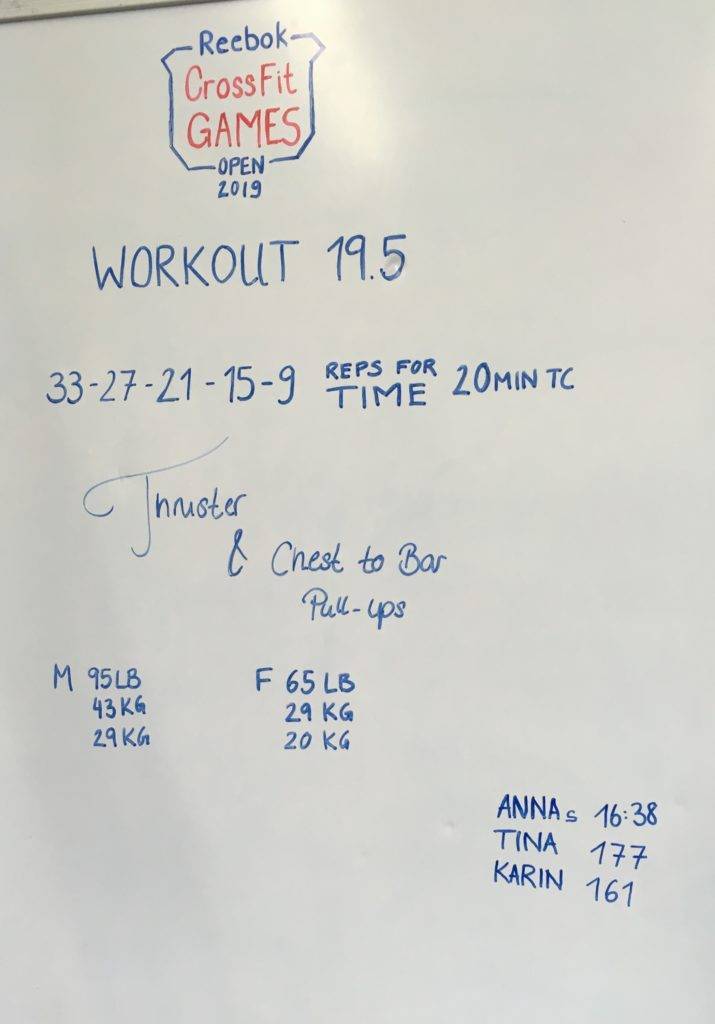 Reebok
CrossFit
GAMES
OPEN
2019
WORKOUT 19.5
33-27-21-15-9 REPS FOR TIME 20MIN TC
Thruster
& Chest to Bar
Pull-ups
M 95LB F 65LB
43KG 29 KG
29KG 20 KG
ANNA S 16:38
TINA 177
KARIN 161